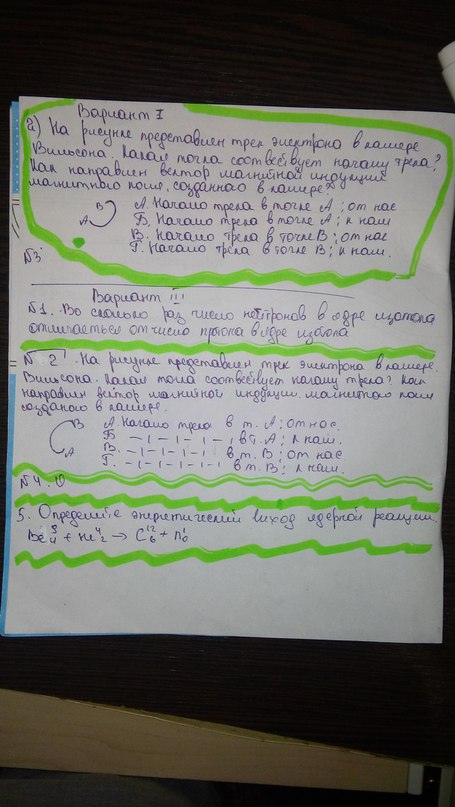 Вариант I
а) На рисунке представлен трек электрона в камере
Вильсона. Какая точка соотвествует началу трека?
Как направлен вектор магнитной индукции
магнитного поля, созданного в камере?
В
А
А. Начало трека в точке А; от нас
Б. Начало трека в точке А; к нам
В. Начало трека в точке В; от нас
Г. Начало трека в точке В; к нам.
№3
Вариант III
№1. Во сколько раз число нейтронов в ядре изотопа
отличаеться от число протона в ядре изотопа
№ 2. На рисунке представлен трек электрона в камере.
Вильсона. Какая точка соотвествует началу трека? Как
направлен вектор магнитной индукции магнитного поля
созданого в камере.
В
А
А. Начало трека в т. А; от нас.
Б — ı — ı — ı — ı в т. А; к нам.
В. — ı — ı — ı — ı в т. В; от нас
Г. — ı — ı — ı — ı в т. В; к нам.
№4.
5. Определите энергетический выход ядерной реакции.
Be⁹₄ + He⁴₂ → C¹²₆ + n¹₀